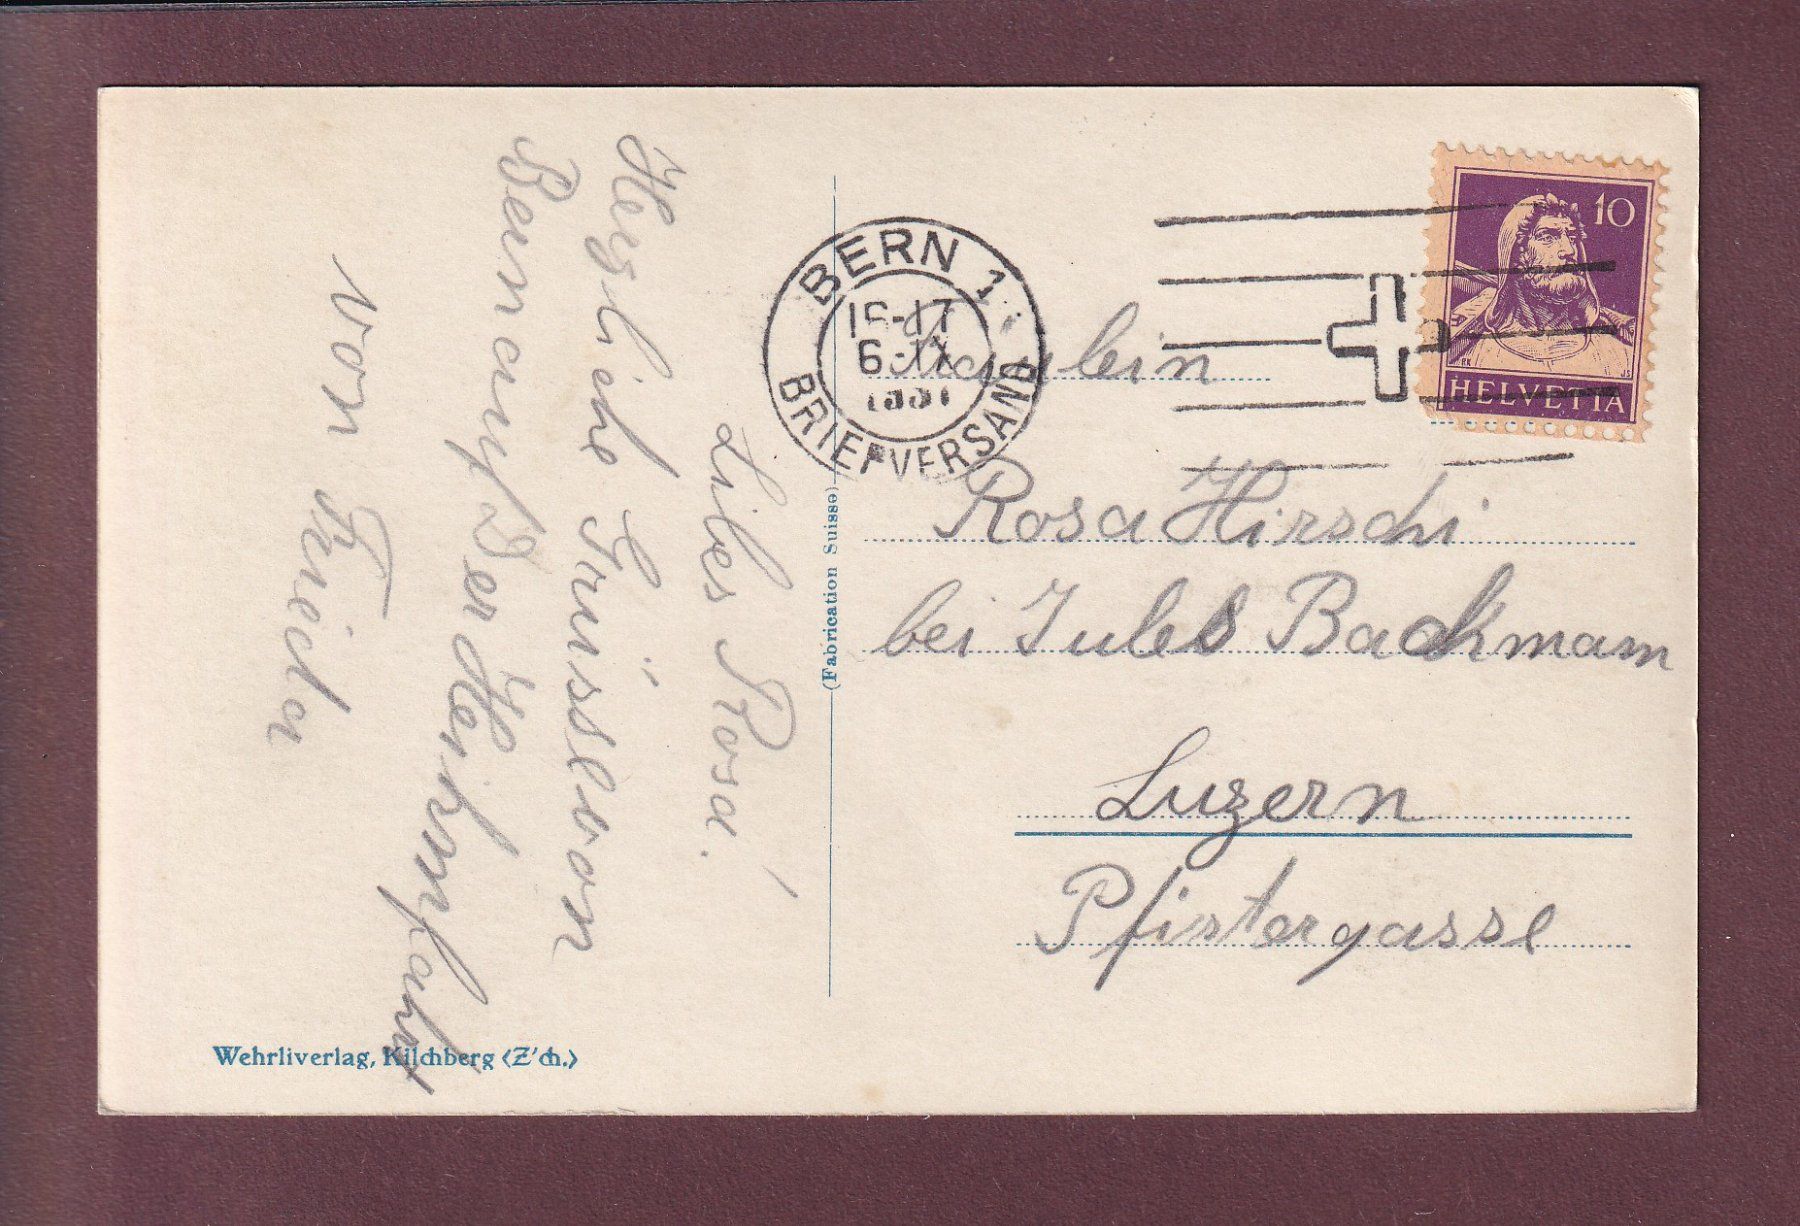 Libes Rosa!
Herzliche Grüsse von
Bern auf Der Heihmfahrt
von Frieda
Wehrliverlag, Kilchberg (Z'ch.)
(Fabrication Suisse)
BERN 1
16-17
6.IX
1931
BRIEFVERSAND
10
HELVETIA
Fraulein
Rosa Hirschi
bei Jules Bachmann
Luzern
Pfistergasse